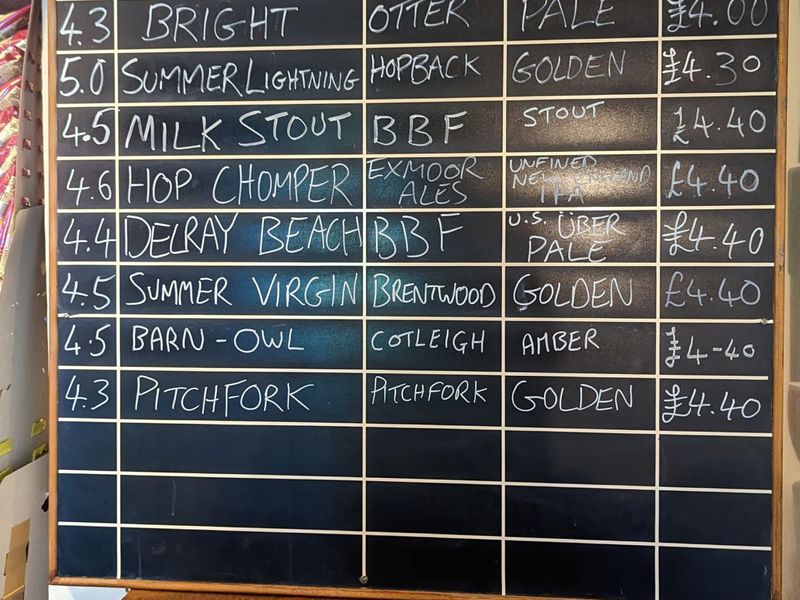 4.3 BRIGHT OTTER PALE £4.00
5.0 SUMMER LIGHTNING HOPBACK GOLDEN £4.30
4.5 MILK STOUT BBF STOUT £4.40
4.6 HOP CHOMPER EXMOOR ALES UNFINED NEW ENGLAND IPA £4.40
4.4 DELRAY BEACH BBF U.S. ÜBER PALE £4.40
4.5 SUMMER VIRGIN BRENTWOOD GOLDEN £4.40
4.5 BARN-OWL COTLEIGH AMBER £4-40
4.3 PITCHFORK PITCHFORK GOLDEN £4.40